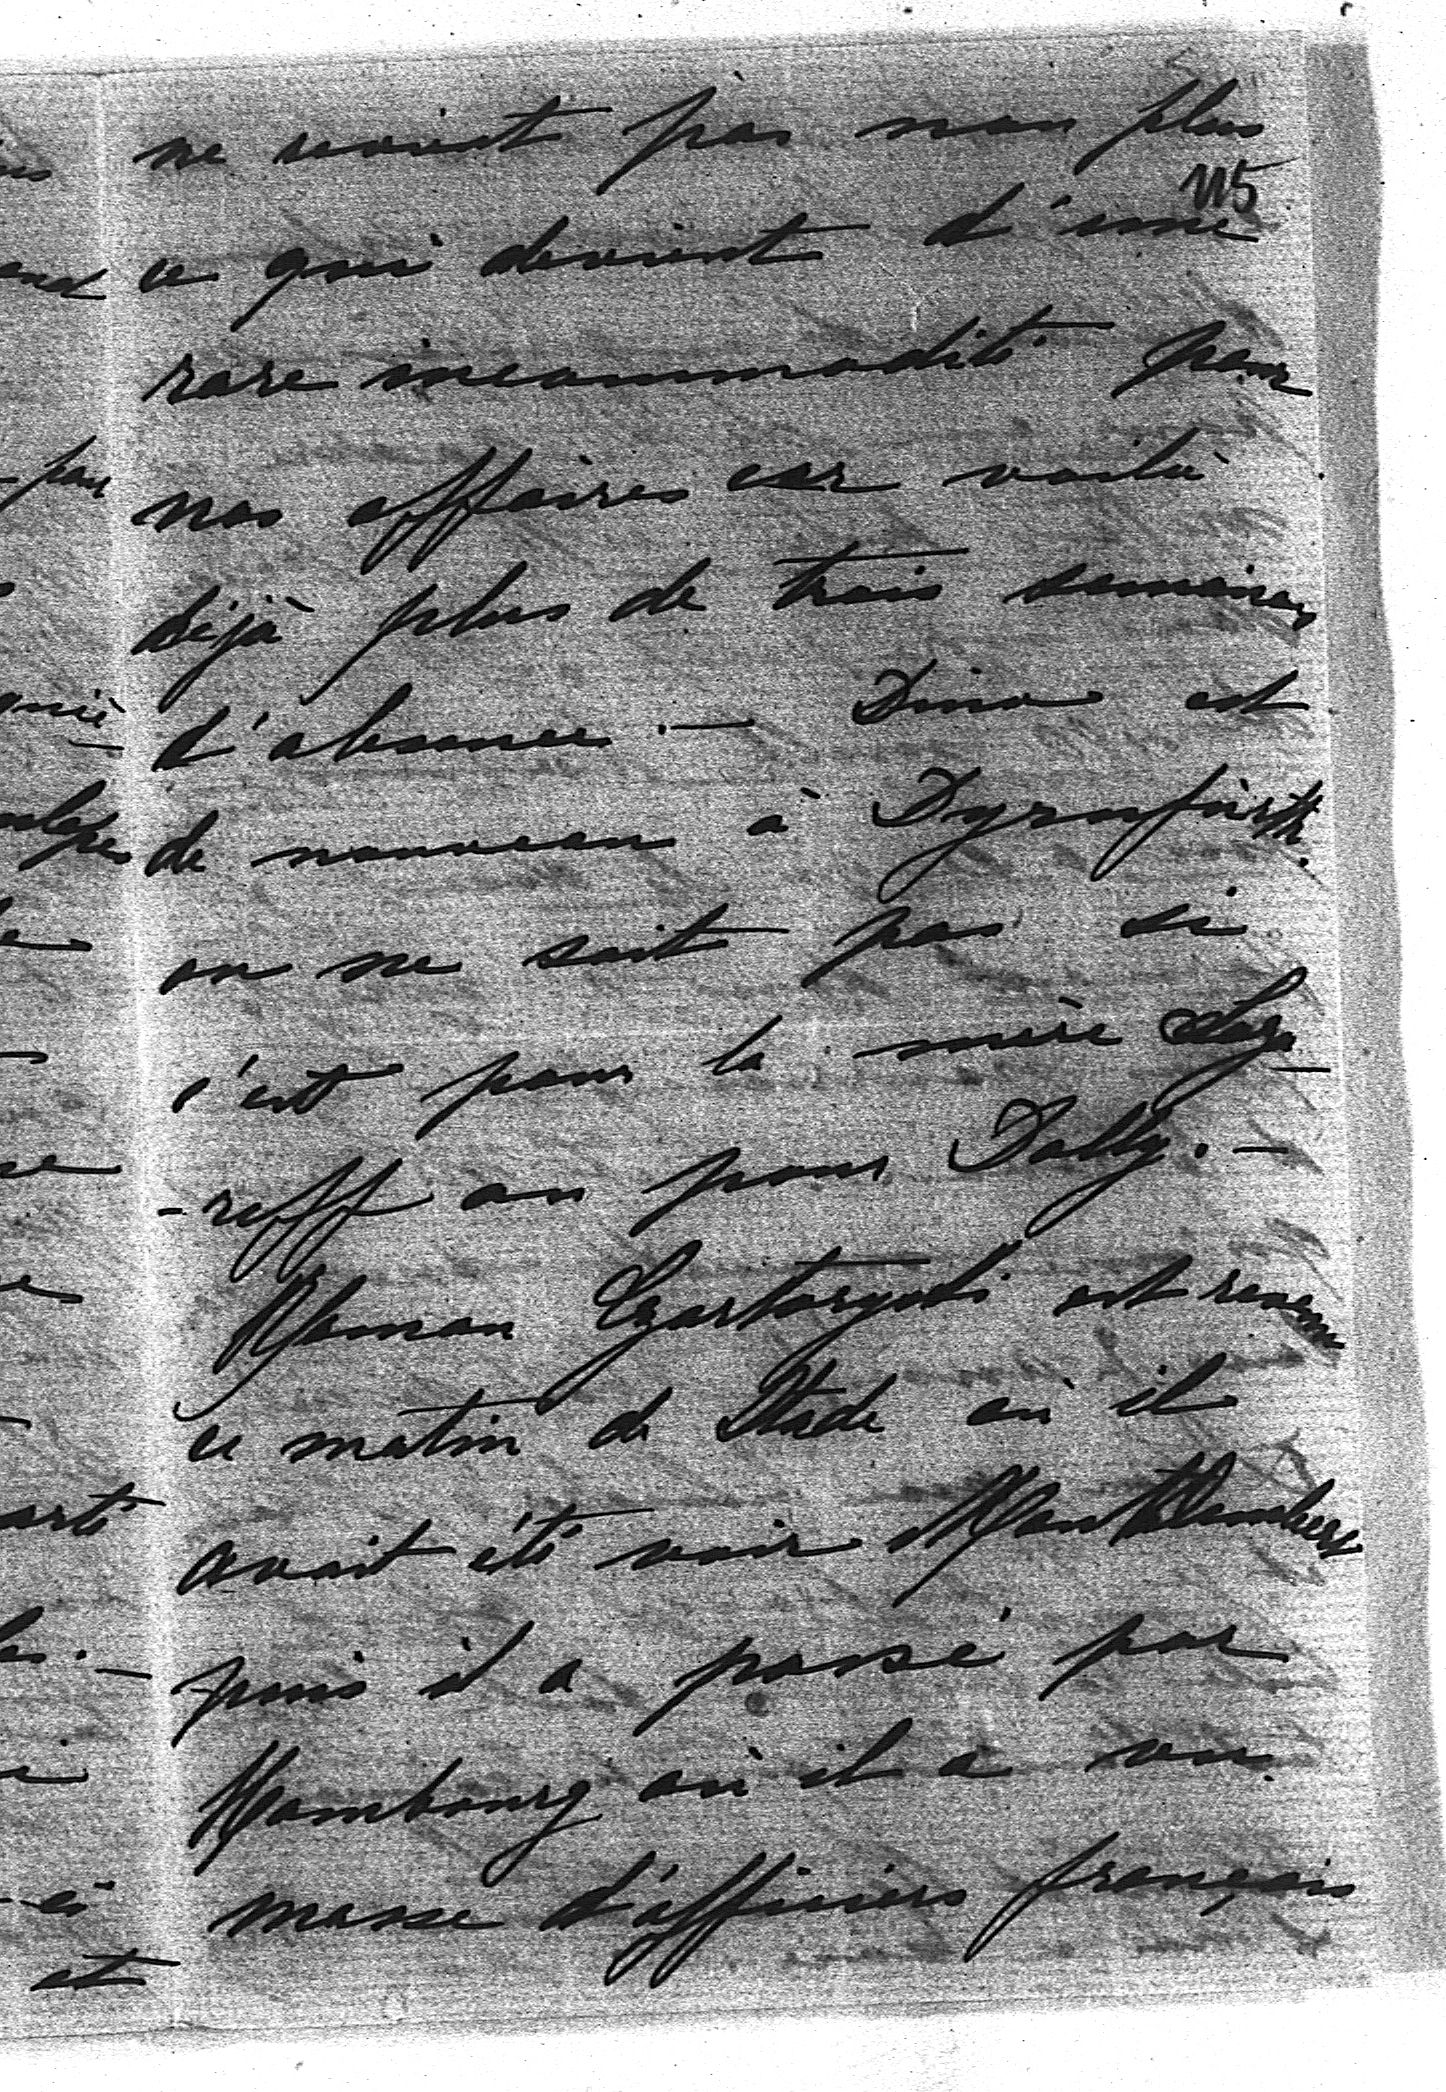 ne revient pas non plus
115
ce qui devient d'une
rare incommodité pour
nos affaires car voilà
déjà plus de trois semaines
d'absence. — Dino est
de nouveau à Dyrnfurth.
on ne sait pas si
c'est pour la mère Laza-
-reff ou pour Dolly. —
Roman Czartoryski est revenu
ce matin de Stade où il
avait été voir Montalembert
puis il a passé par
Hambourg où il a vu
masse d'officiers français